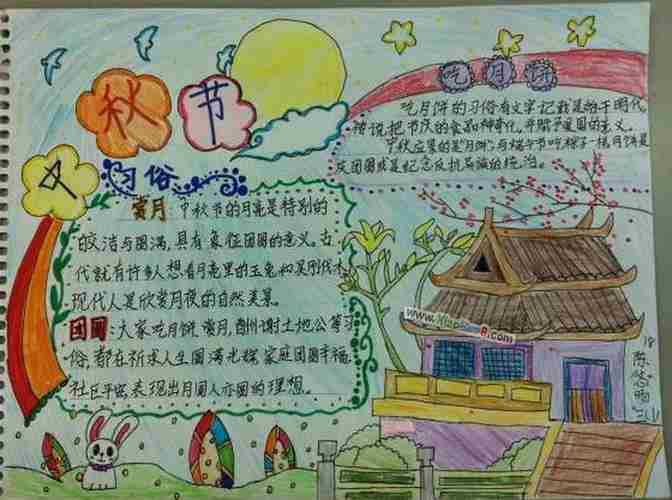 中
秋
节
习俗
赏月:中秋节的月亮是特别的
皎洁与圆满,具有象征团圆的意义。古
代就有许多人想看月亮里的玉兔和吴刚伐木
现代人是欣赏月夜的自然美景。
团圆:大家吃月饼,赏月,酬谢土地公等习
俗,都在祈求人生圆满光辉家庭团圆幸福
社区平安,表现出月圆人亦圆的理想。
吃月饼
吃月饼的习俗有文字记载是始于明代
传说把节庆的食品神奇化,并赋予爱国的意义。
中秋应景的是月饼,与端午节吃粽子一样月饼是
庆团圆或是纪念反抗异族的统治。
18
陈